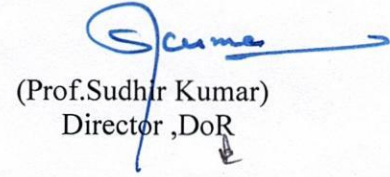 (Prof.Sudhir Kumar)
Director ,DoR